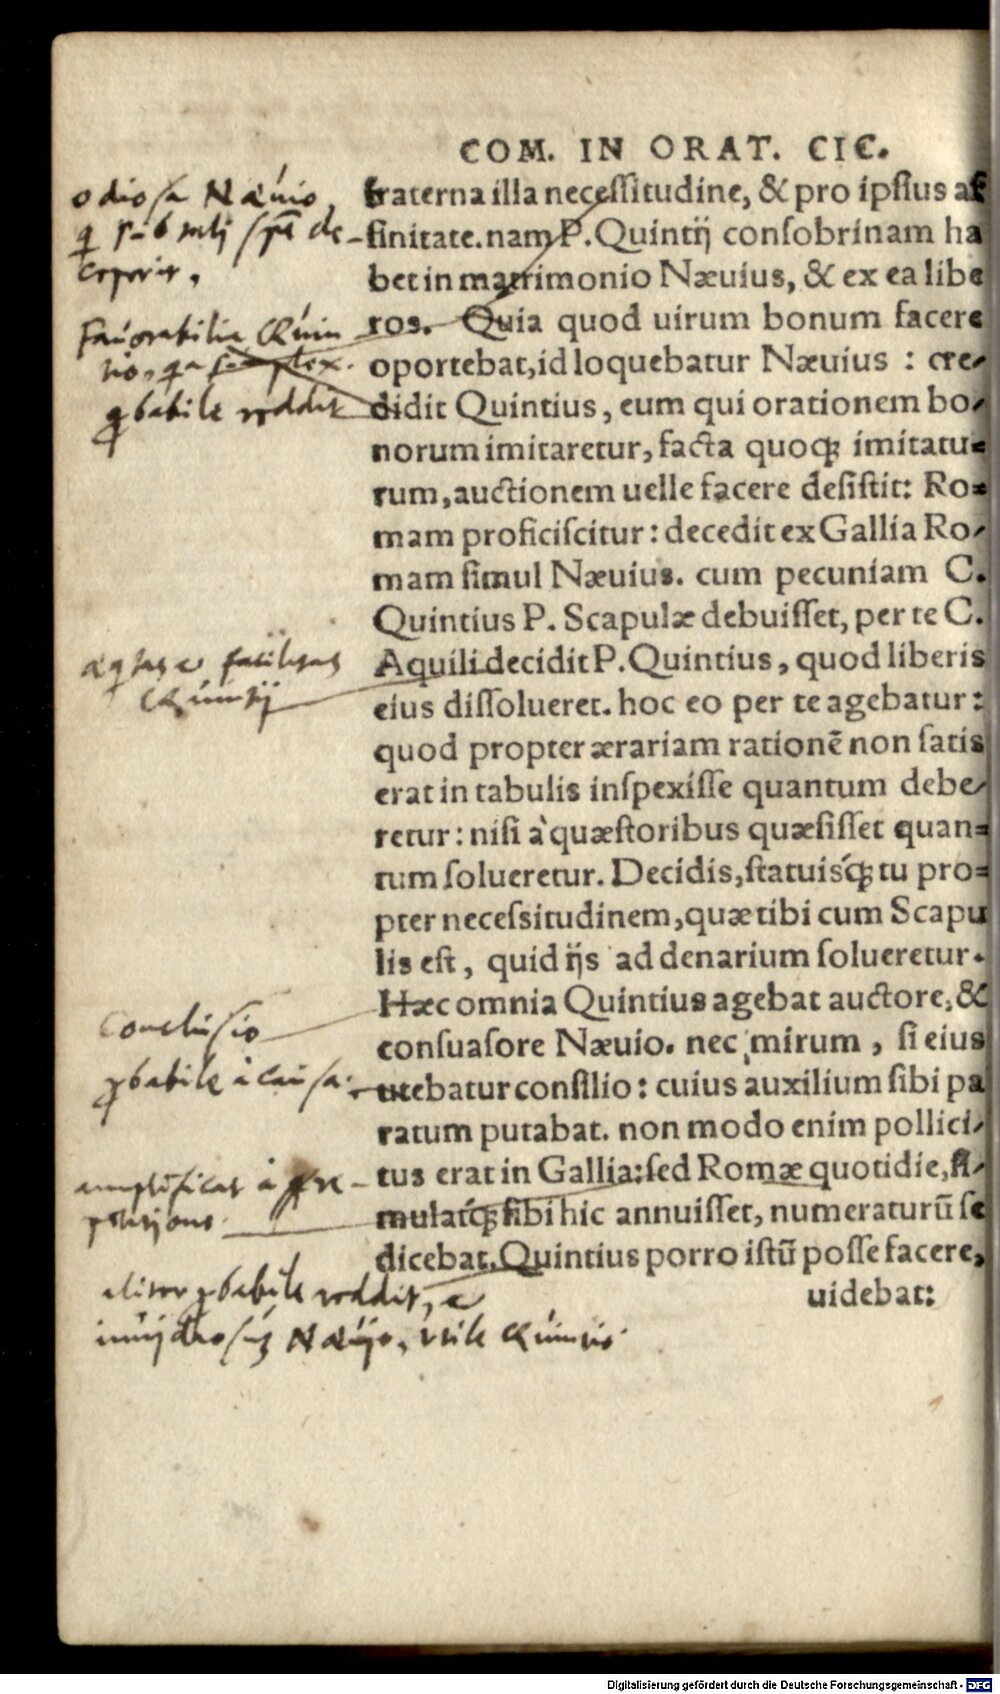 COM. IN ORAT. CIC.
fraterna illa necessitudine, & pro ipsius af
finitate. nam P. Quintij consobrinam ha
bet in matrimonio Nævius, & ex ea libe
ros. Quia quod uirum bonum facere
oportebat, id loquebatur Næuius : cre-
didit Quintius, eum qui orationem bo-
norum imitaretur, facta quoq; imitatu-
rum, auctionem uelle facere desistit: Ro-
mam proficiscitur: decedit ex Gallia Ro-
mam simul Næuius. cum pecuniam C.
Quintius P. Scapulæ debuisset, per te C.
Aquili decidit P. Quintius, quod liberis
eius dissolueret. hoc eo per te agebatur:
quod propter ærariam rationē non satis
erat in tabulis inspexisse quantum debe-
retur: nisi à quæstoribus quæsisset quan-
tum solueretur. Decidis, statuisq́; tu pro-
pter necessitudinem, quæ tibi cum Scapu
lis est, quid ijs ad denarium solueretur.
Hæc omnia Quintius agebat auctore, &
consuasore Næuio. nec mirum, si eius
utebatur consilio: cuius auxilium sibi pa
ratum putabat. non modo enim pollici-
tus erat in Gallia: sed Romæ quotidie, si-
mulatq́; sibi hic annuisset, numeraturū se
dicebat. Quintius porro istū posse facere,
uidebat:
odiosa Næuio,
de-
ceperit.
fauorabilia Quin
tio,
babile reddit
facilitas
Quintij
Conclusio
babile à causa.
amplificat à
aliter babile reddit, et
Næuio, utile Quintio.
Digitalisierung gefördert durch die Deutsche Forschungsgemeinschaft - DFG